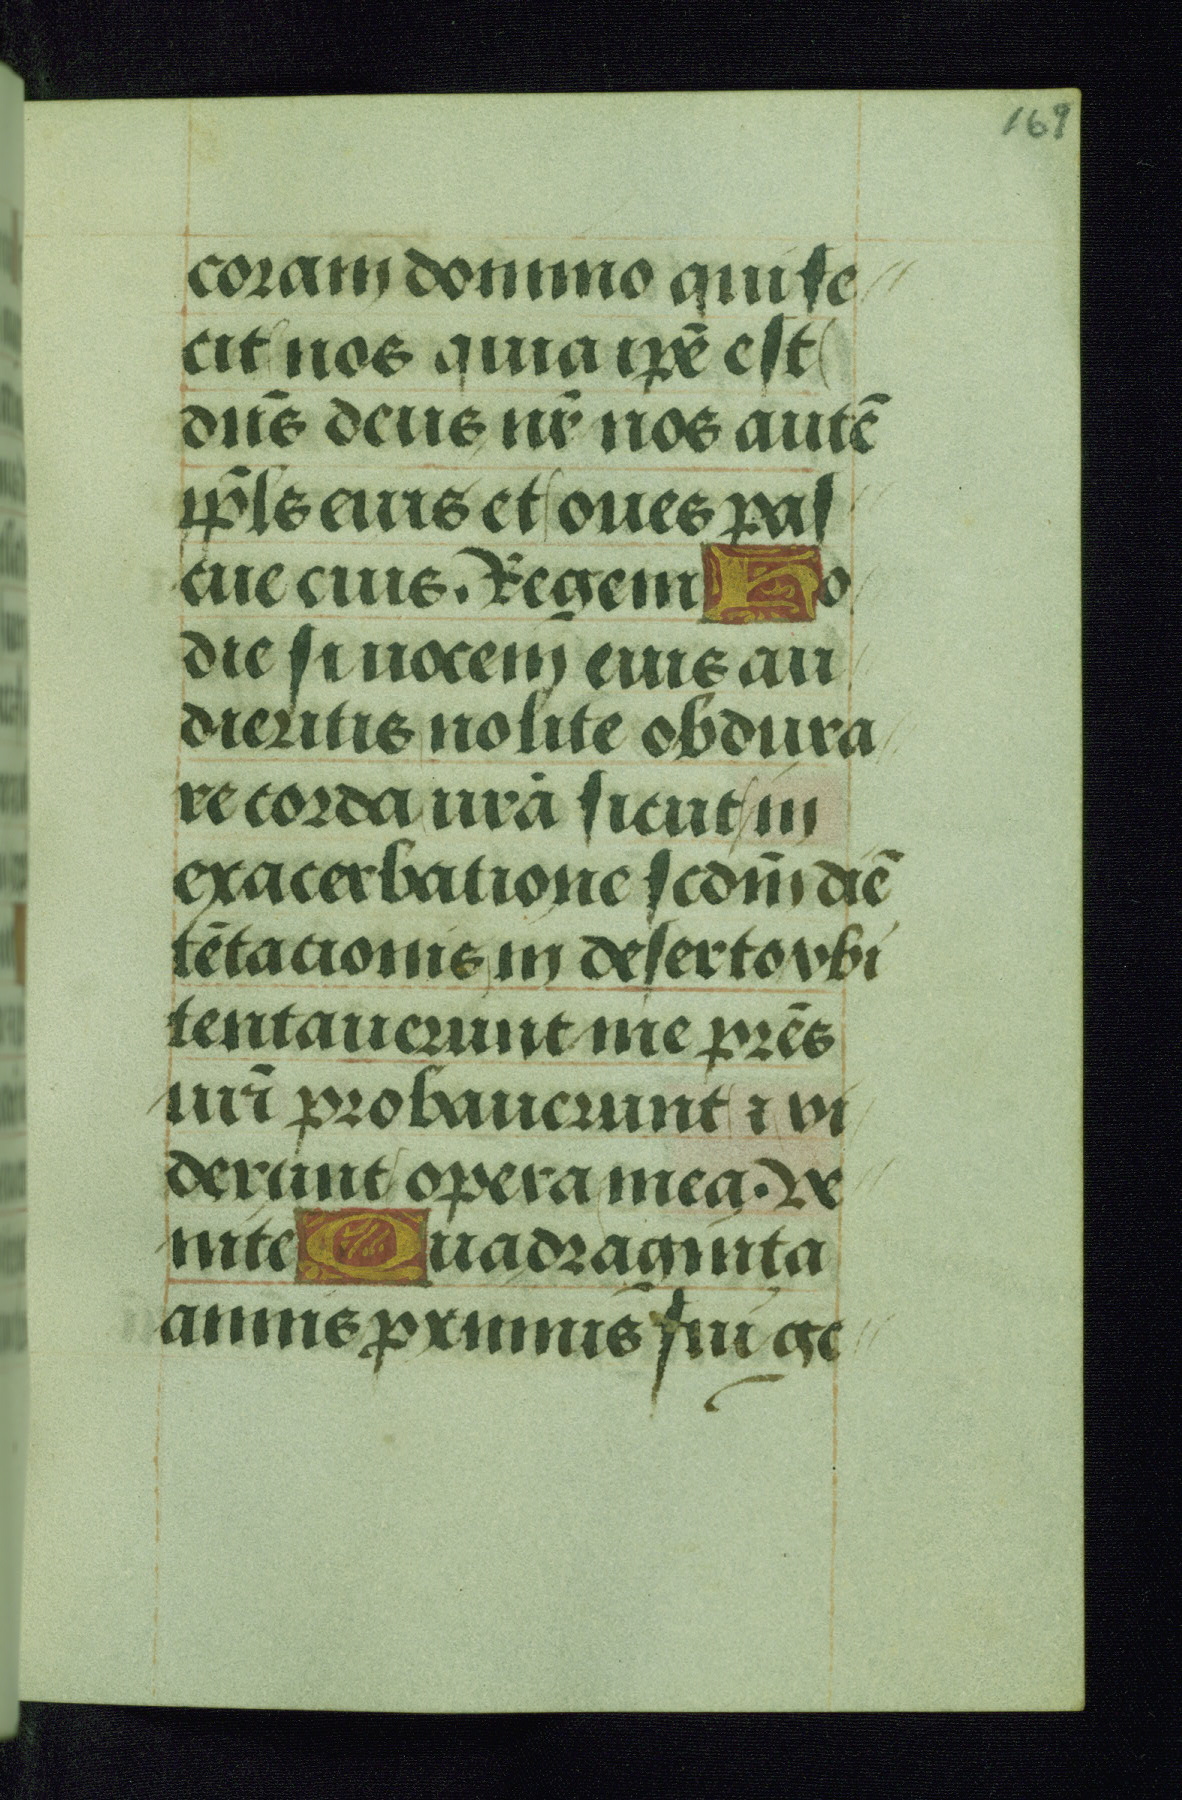 169
coram domino qui fe
cit nos quia ipẽ est
dñs deus nr̃ nos autẽ
pp̃ls eius et oues pas
cue eius. Regem Ho
die si uocem eius au
dieritis nolite obdura
re corda urã sicut in
exacerbatione scdm̃ diẽ
tẽtacionis in deserto vbi
tentauerunt me prẽs
urĩ probauerunt ⁊ vi
derunt opera mea. Ve
nite Quadraginta
annis proximus fui ge